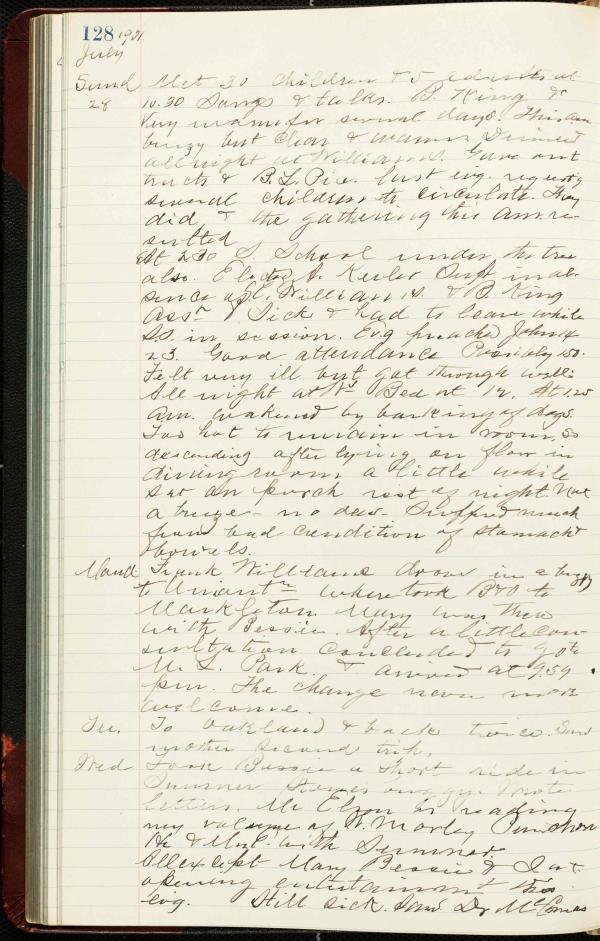 128 1901
July
Sund Met 30 children & 5 adults at
28 10.30 Songs & talks. B. King &
Very warm for several days. This am
breezy but clear & warm. Dinner
all night at Williams. Gave out
tracts & B.L. Pic. last evg. requesting
several children to circulate. They
did, & the gathering this am re-
sulted
At 2.30 S. School under the tree
also. Elected A. Keeler Supt in ab-
sence of E. Williams. & B. King
Asst. I sick & had to leave while
S.S. in session. Evg preached John 4
23. Good attendance Possibly
Felt very ill but got through well.
All night at Ws Bed at 12. At 1.20
am. wakened by barking of dogs.
Too hot to remain in room, so
descending after lying on floor in
dining room a little while
sat on porch rest of night. Not
a breeze - no dew. Suffered much
from bad condition of stomach &
bowels.
Mond Frank Williams drove in a buggy
to where took B&O to
Markleton. Mary was there
with Bessie. After a little con-
sultation concluded to go to
M. L. Park. & arrived at 9.59
pm. The change never more
welcome.
Tu. To Oakland & back twice. Saw
mother second trip.
Wed Took Bessie a short ride in
Summer buggy. Wrote
letters. Mr Elson is reading
my volume of W. Morley Punshon
He & Mrs. with Summer.
All except Mary Bessie & I at
opening entertainment this
evg. Still sick. Saw Dr McComas